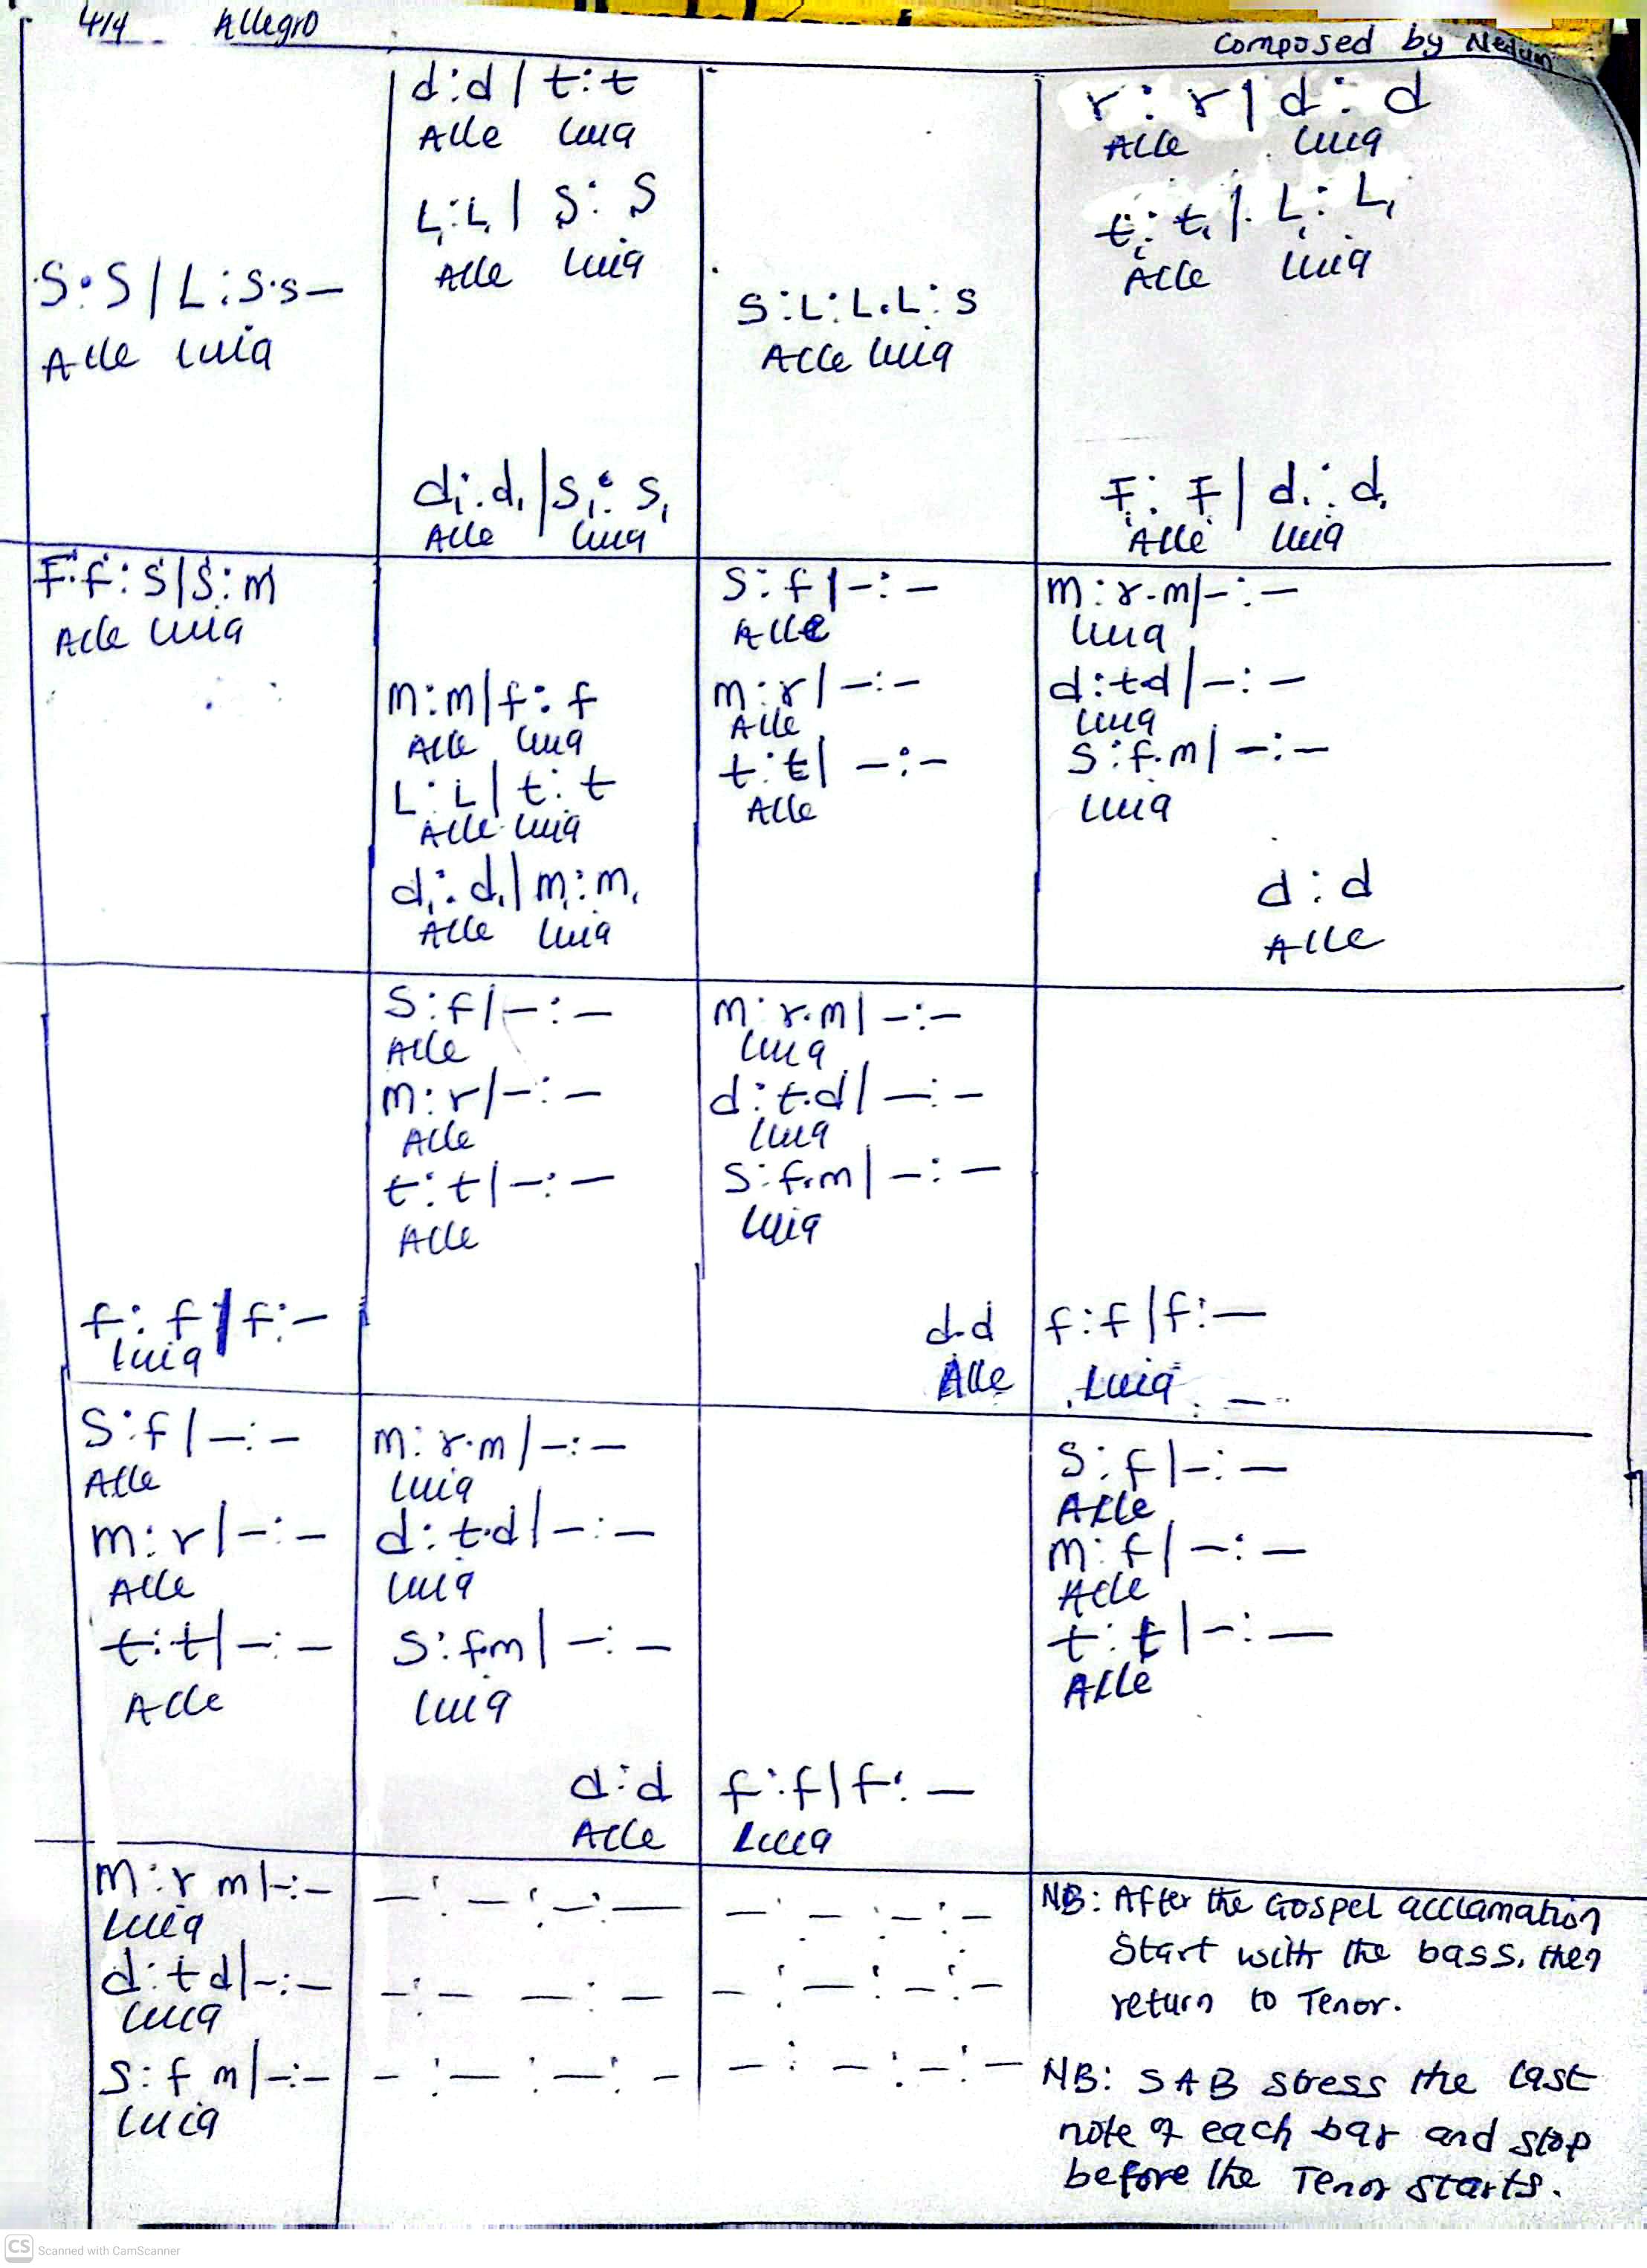 4/4 Allegro
Composed by Nedum
d:d | t:t
Alle luia
L,:L, | S:S
Alle luia
S:S | L:S.s—
Alle luia
d,:d, | s,:s,
Alle luia
S:L:L.L:S
Alle luia
r:r | d:d
Alle luia
t,:t, | L,:L,
Alle luia
F,:F, | d,:d,
Alle luia
F.f:S | S:m
Alle luia
m:m | f:f
Alle luia
L:L | t:t
Alle luia
d,:d, | m,:m,
Alle luia
S:f | —:—
Alle
m:r | —:—
Alle
t:t | —:—
Alle
m:r.m | —:—
luia
d:t.d | —:—
luia
S:f.m | —:—
luia
d:d
Alle
f:f | f:—
luia
S:f | —:—
Alle
m:r | —:—
Alle
t:t | —:—
Alle
m:r.m | —:—
luia
d:t.d | —:—
luia
S:f.m | —:—
luia
d.d
Alle
f:f | f:—
Luia —
S:f | —:—
Alle
m:r | —:—
Alle
t:t | —:—
Alle
m:r.m | —:—
luia
d:t.d | —:—
luia
S:f.m | —:—
luia
d:d
Alle
f:f | f:—
Luia
S:f | —:—
Alle
m:f | —:—
Alle
t:t | —:—
Alle
m:r m | —:—
luia
d:t d | —:—
luia
S:f m | —:—
luia
—:—:—:— —:—:—:—
—:— —:— —:—:—:—
—:—:—:— —:—:—:—
NB: After the Gospel acclamation
Start with the bass, then
return to Tenor.
NB: SAB stress the last
note of each bar and stop
before the Tenor starts.
CS Scanned with CamScanner